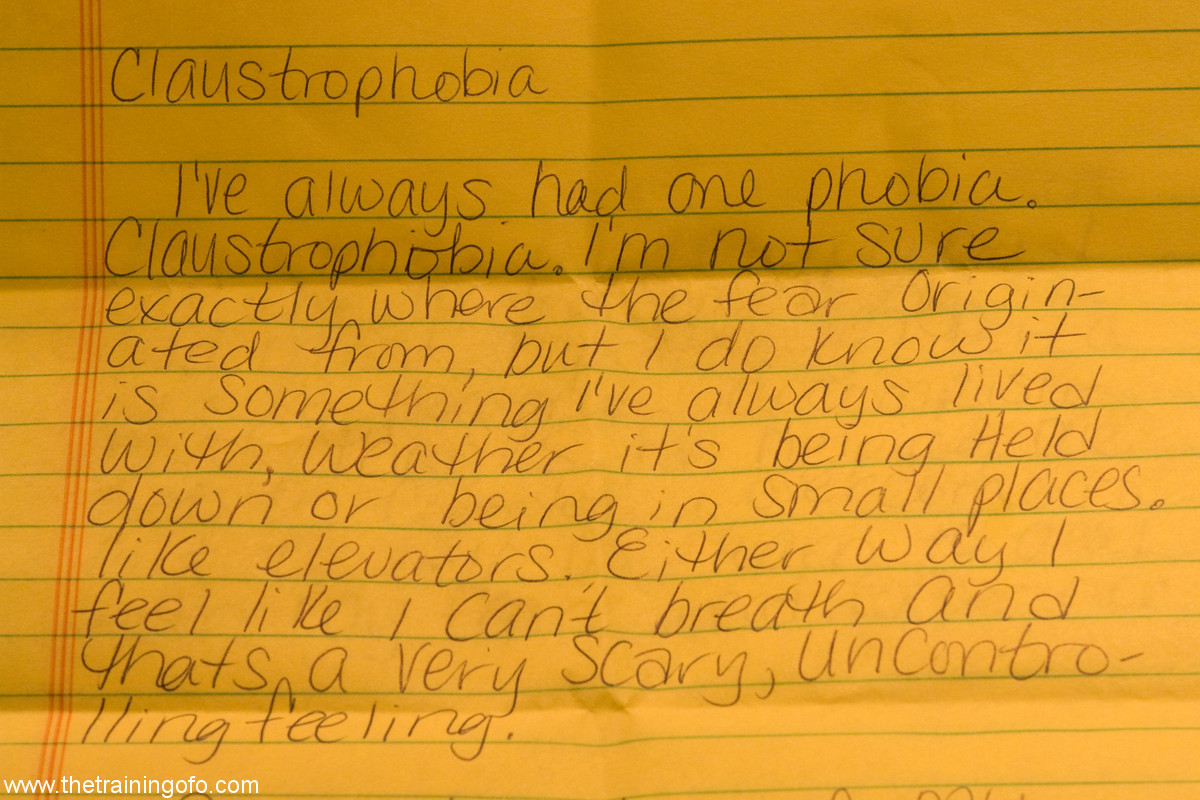 Claustrophobia
I've always had one phobia.
Claustrophobia. I'm not sure
exactly where the fear Origin-
ated from, but I do know it
is Something I've always lived
with, weather it's being Held
down or being in small places.
like elevators. Either way I
feel like I can't breath and
thats a very scary, uncontro-
lling feeling.
www.thetrainingofo.com